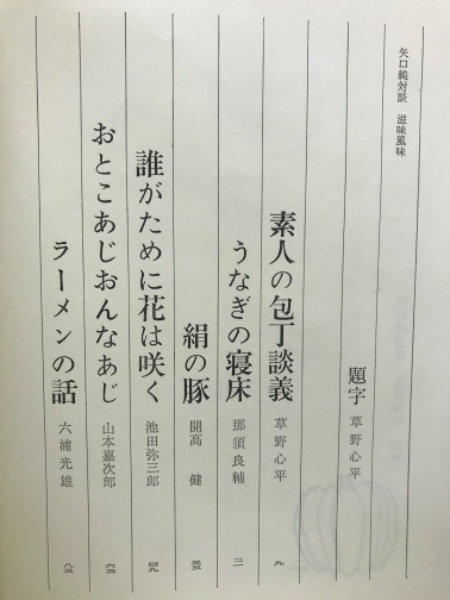 矢口純対談 滋味風味
題字 草野心平
素人の包丁談義 草野心平 九
うなぎの寝床 那須良輔 二一
絹の豚 開高 健 三五
誰がために花は咲く 池田弥三郎 四九
おとこあじおんなあじ 山本嘉次郎 六三
ラーメンの話 六浦光雄 八三